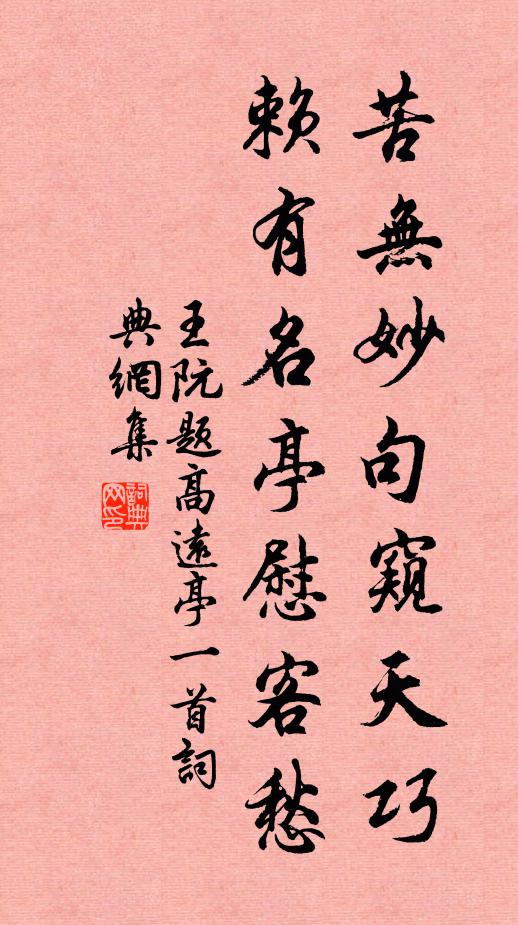 苦無妙句窺天巧
賴有名亭慰客愁
王阮題高遠亭一首詞
典網集
詞典
网印